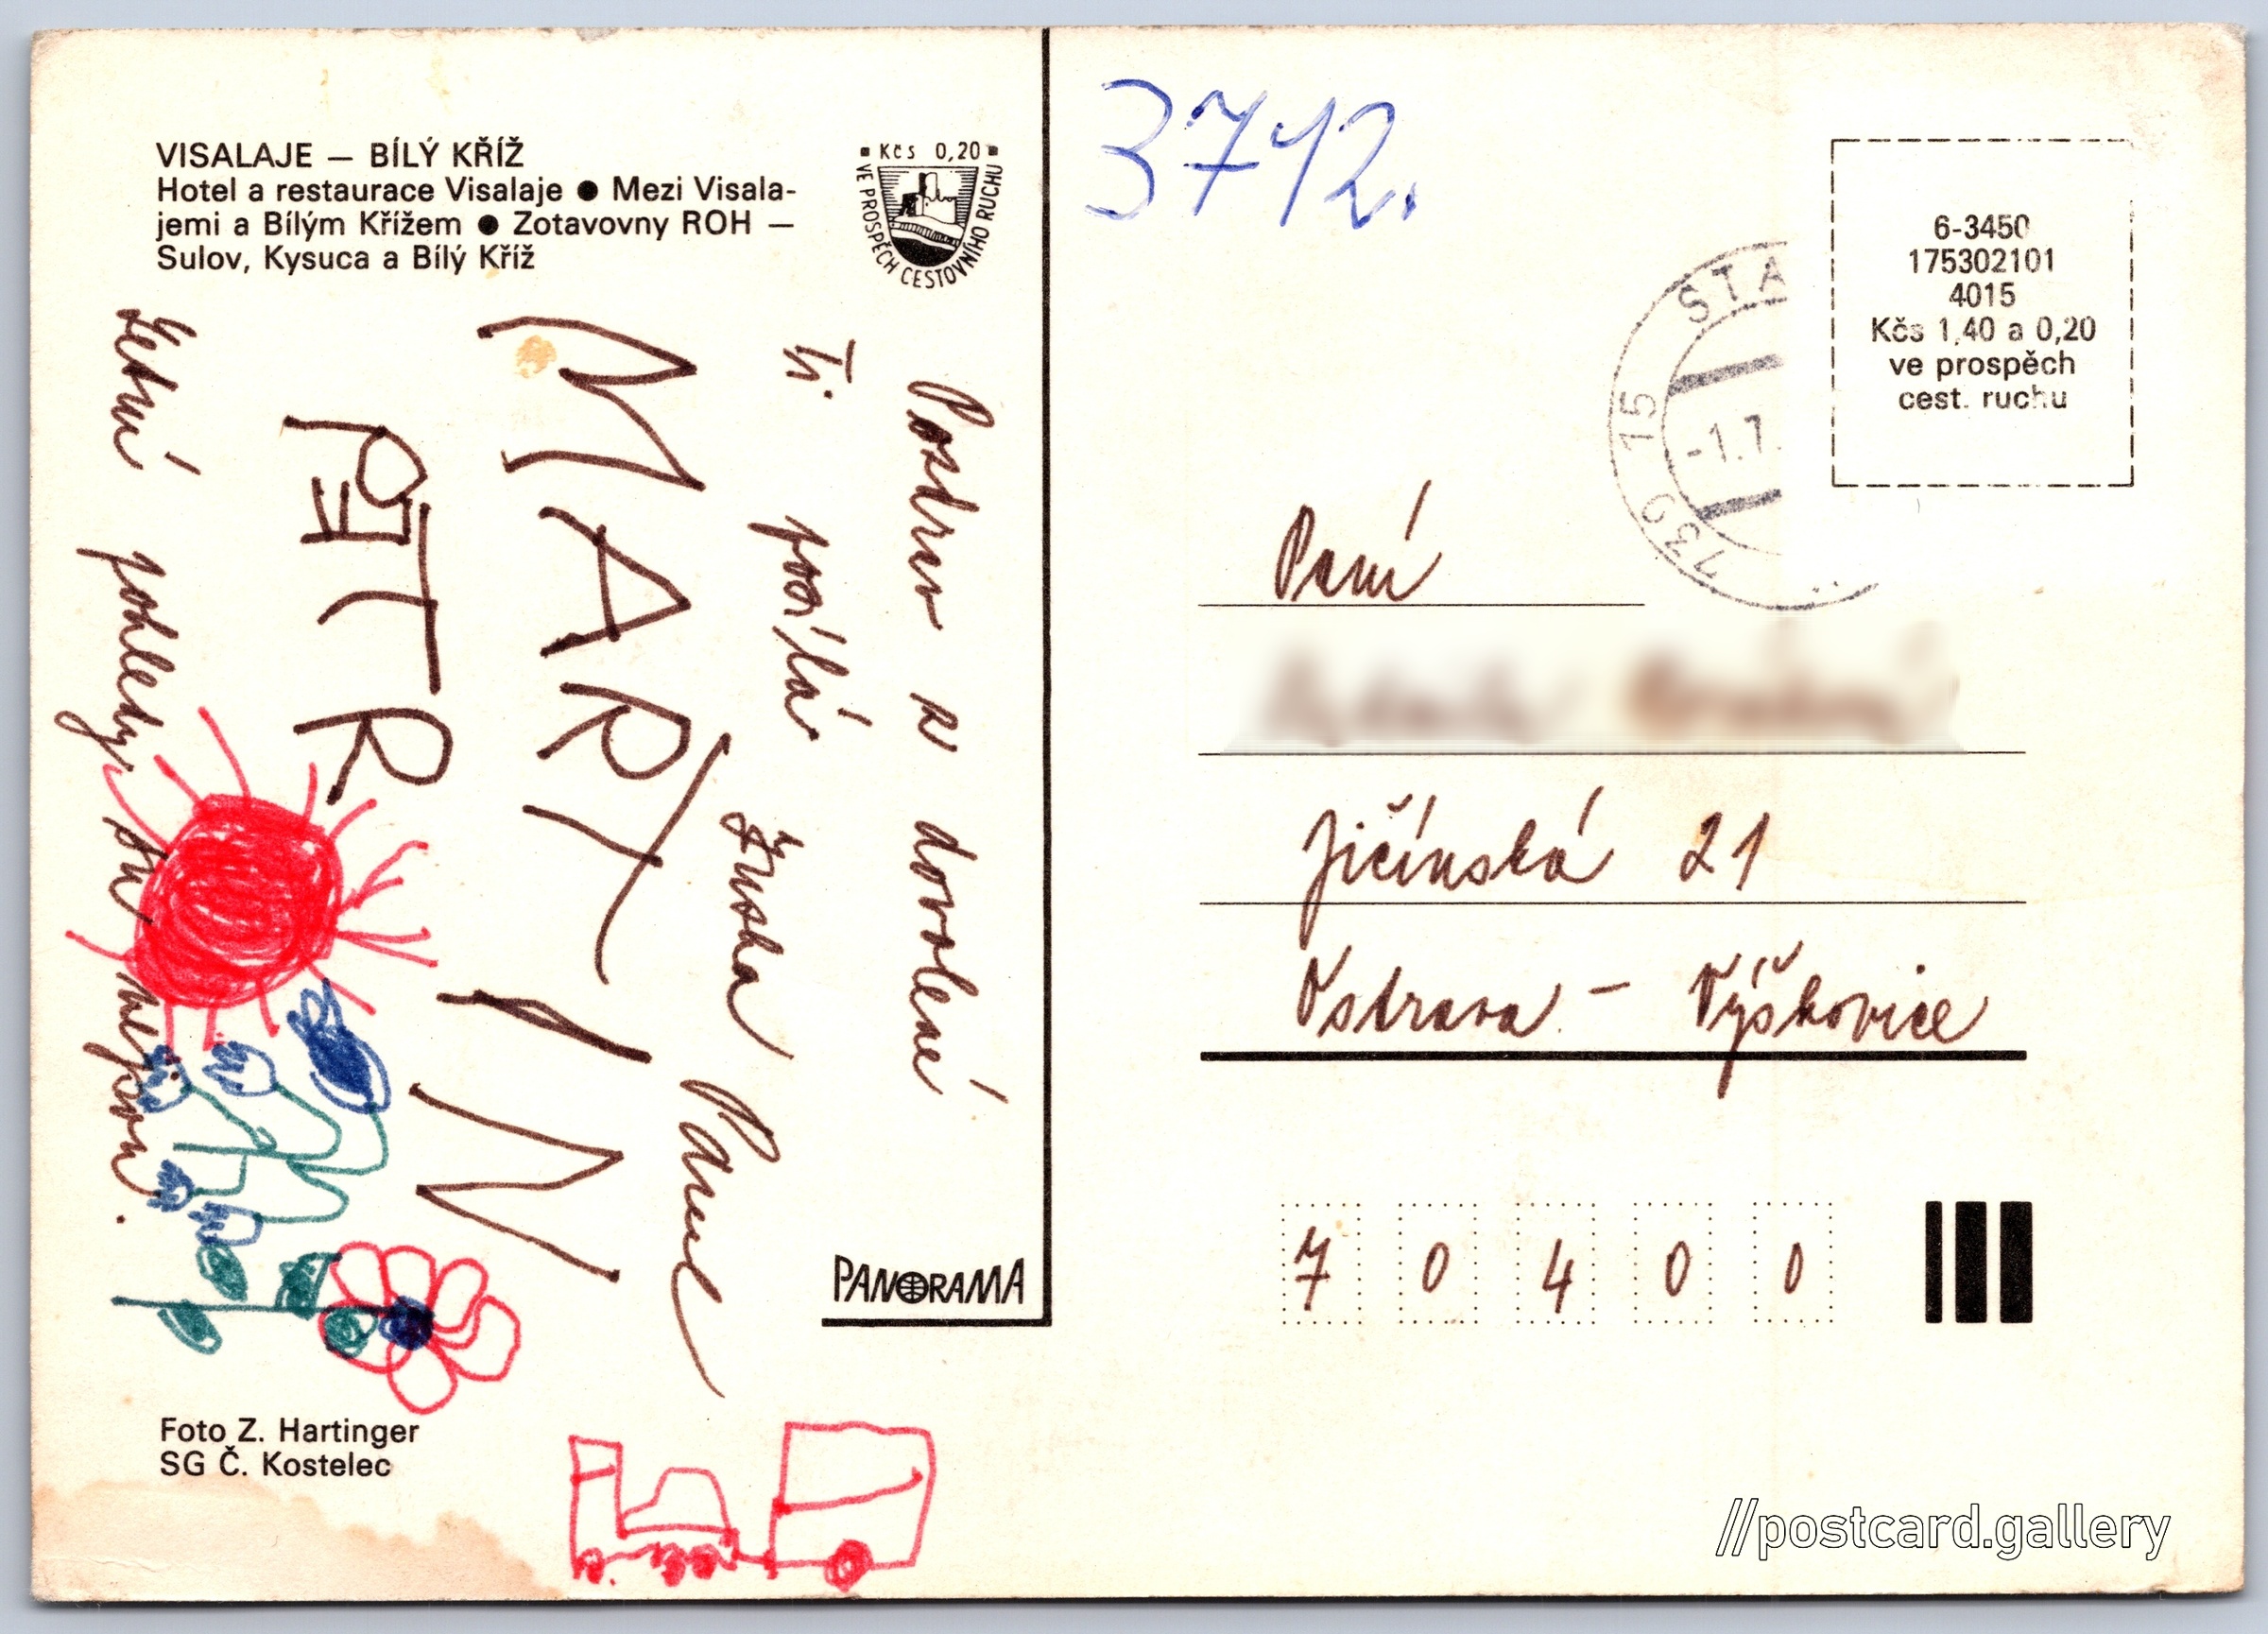 VISALAJE — BÍLÝ KŘÍŽ
Hotel a restaurace Visalaje ● Mezi Visala-
jemi a Bílým Křížem ● Zotavovny ROH —
Sulov, Kysuca a Bílý Kříž
Kčs 0,20
VE PROSPĚCH CESTOVNÍHO RUCHU
Pozdrav z dovolené
Ti posílá
Zuska Pavel
MARTIN
PETR
Letní pohledy tu nejsou.
PANORAMA
Foto Z. Hartinger
SG Č. Kostelec
3742.
6-3450
175302101
4015
Kčs 1,40 a 0,20
ve prospěch
cest. ruchu
STA
-1.7.
739 15
Paní
Jičínská 21
Ostrava - Výškovice
7 0 4 0 0
//postcard.gallery